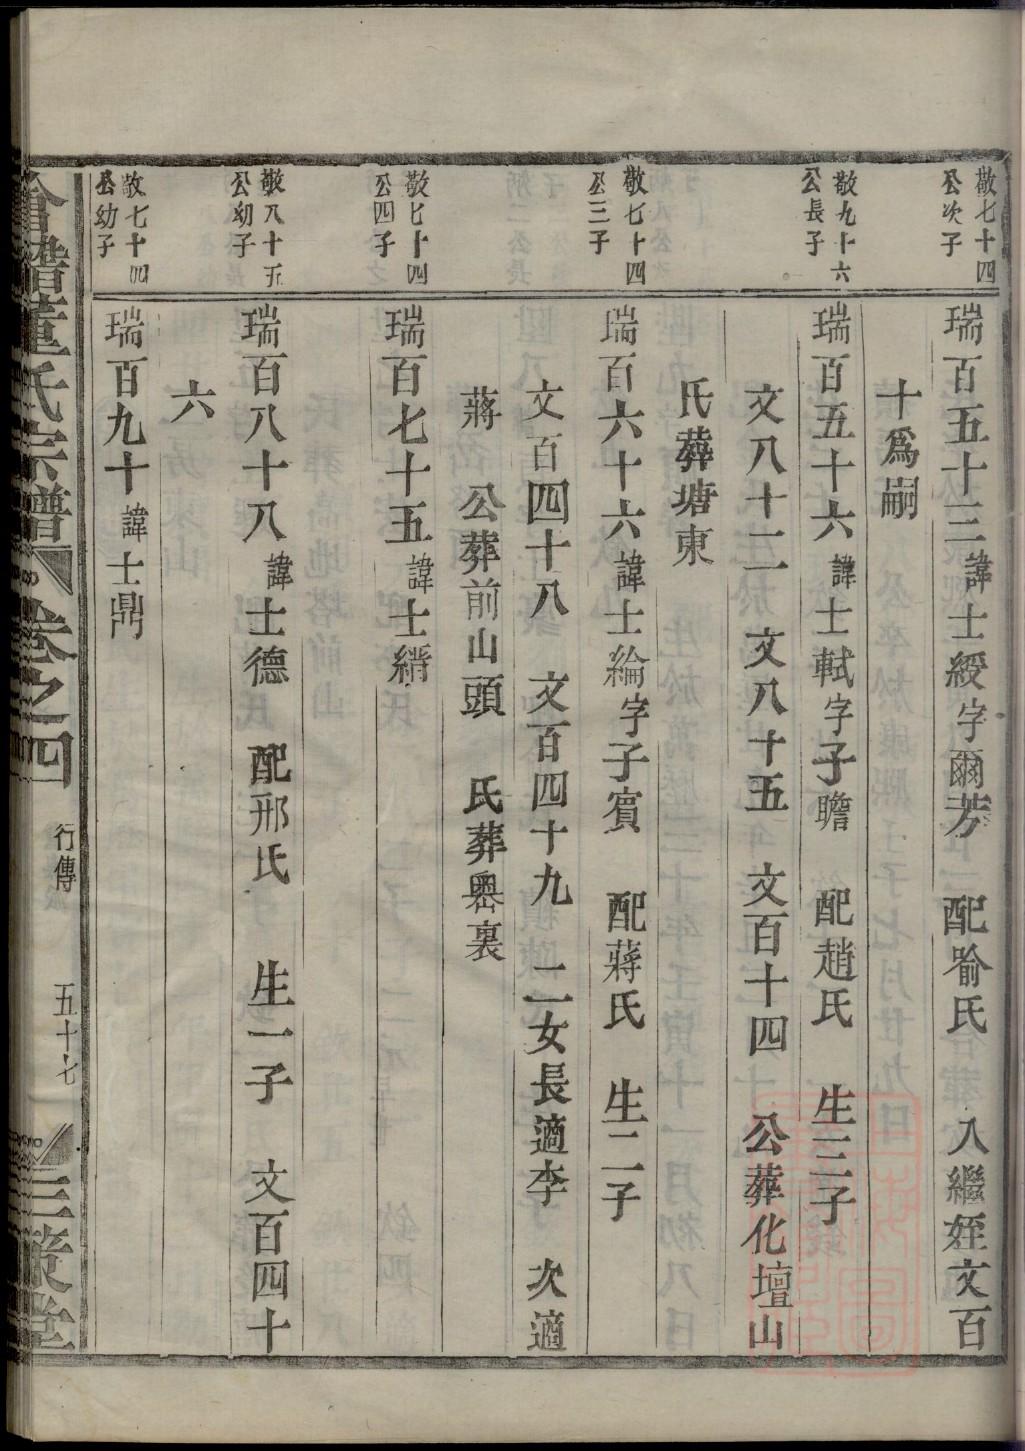 敬七十四
公次子
瑞百五十三諱士綬字爾芳　配喻氏　入繼姪文百
十爲嗣
敬九十六
公長子
瑞百五十六諱士軾字子瞻　配趙氏　生三子
文八十二　文八十五　文百十四　公葬化壇山
氏葬塘東
敬七十四
公三子
瑞百六十六諱士綸字子賓　配蔣氏　生二子
文百四十八　文百四十九　二女長適李　次適
蔣　公葬前山頭　氏葬嶴裏
敬七十四
公四子
瑞百七十五諱士縉
敬八十五
公幼子
瑞百八十八諱士德　配邢氏　生一子　文百四十
六
敬七十四
公幼子
瑞百九十諱士鼎
會稽董氏宗譜　卷之四　行傳　五十七　三策堂